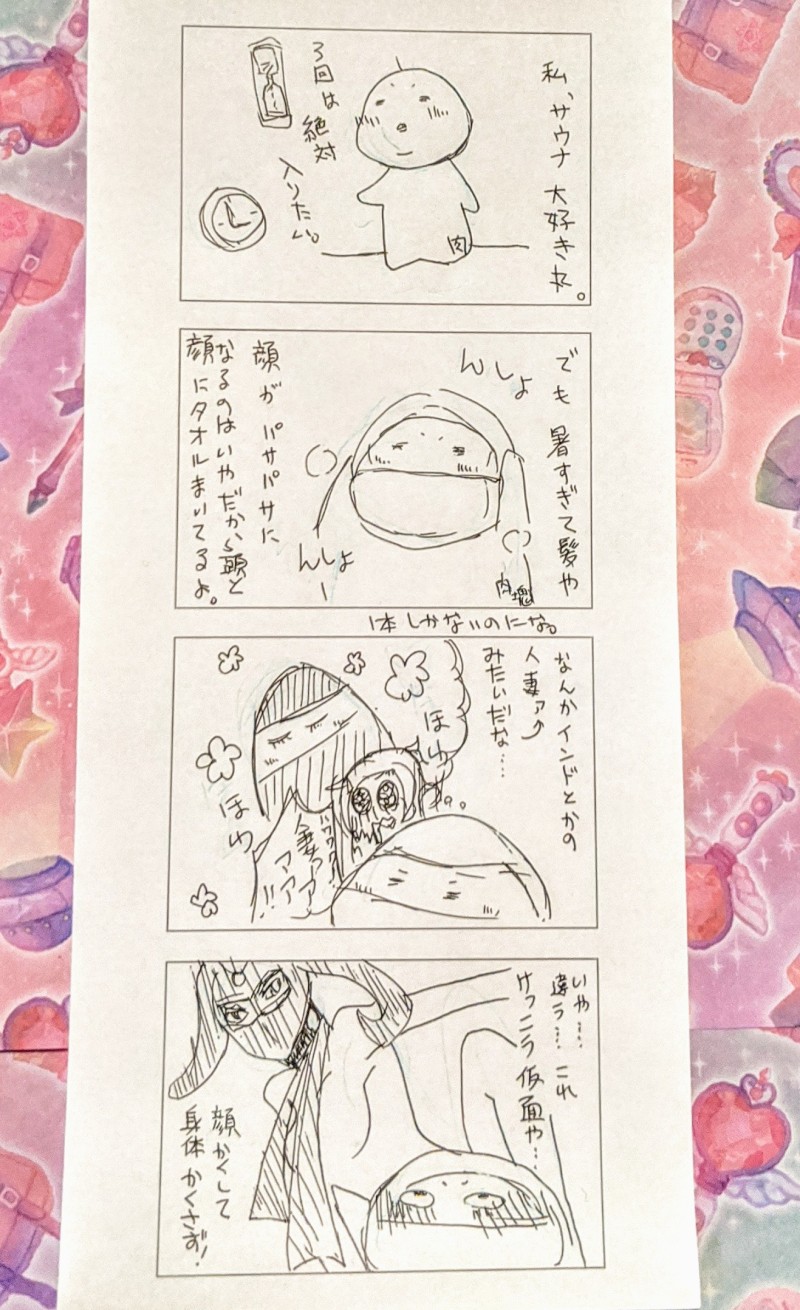 私、サウナ大好きれ。
3回は絶対
入りたい。
肉
でも暑すぎて髪や
んしょ
顔がパサパサに
なるのはいやだから頭と
顔にタオルまいてるよ。
んしょー
肉塊
1本しかないのにな。
なんかインドとかの
人妻ァ
みたいだな……
ほわ
ほわ
人妻っ
アアアア!!
いや……
違う……これ
けっこう仮面や…
顔かくして
身体かくさず!